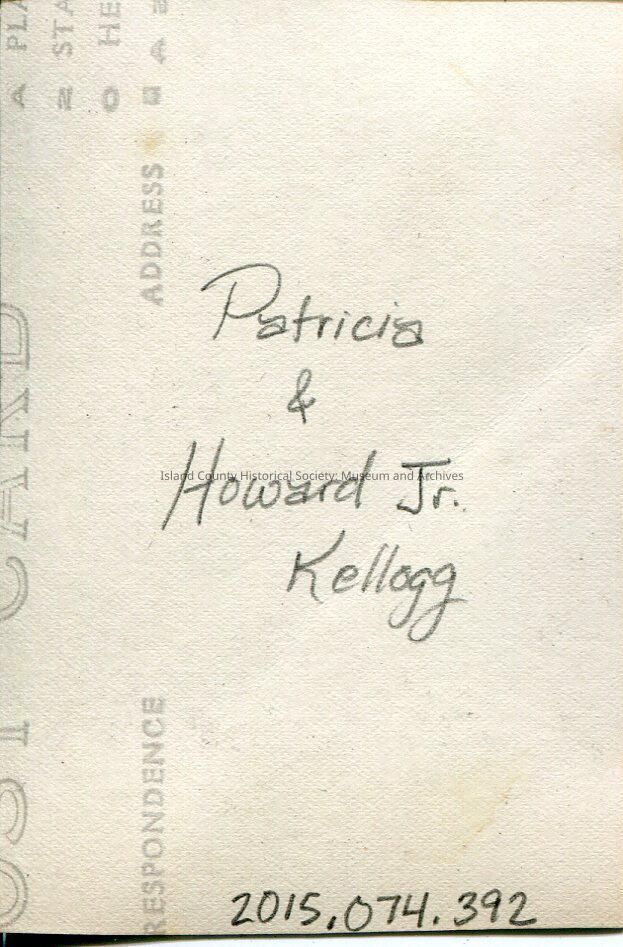 Patricia
&
Howard Jr.
Kellogg
2015.074.392
Island County Historical Society: Museum and Archives
ADDRESS
RESPONDENCE
PLA
STA
HE